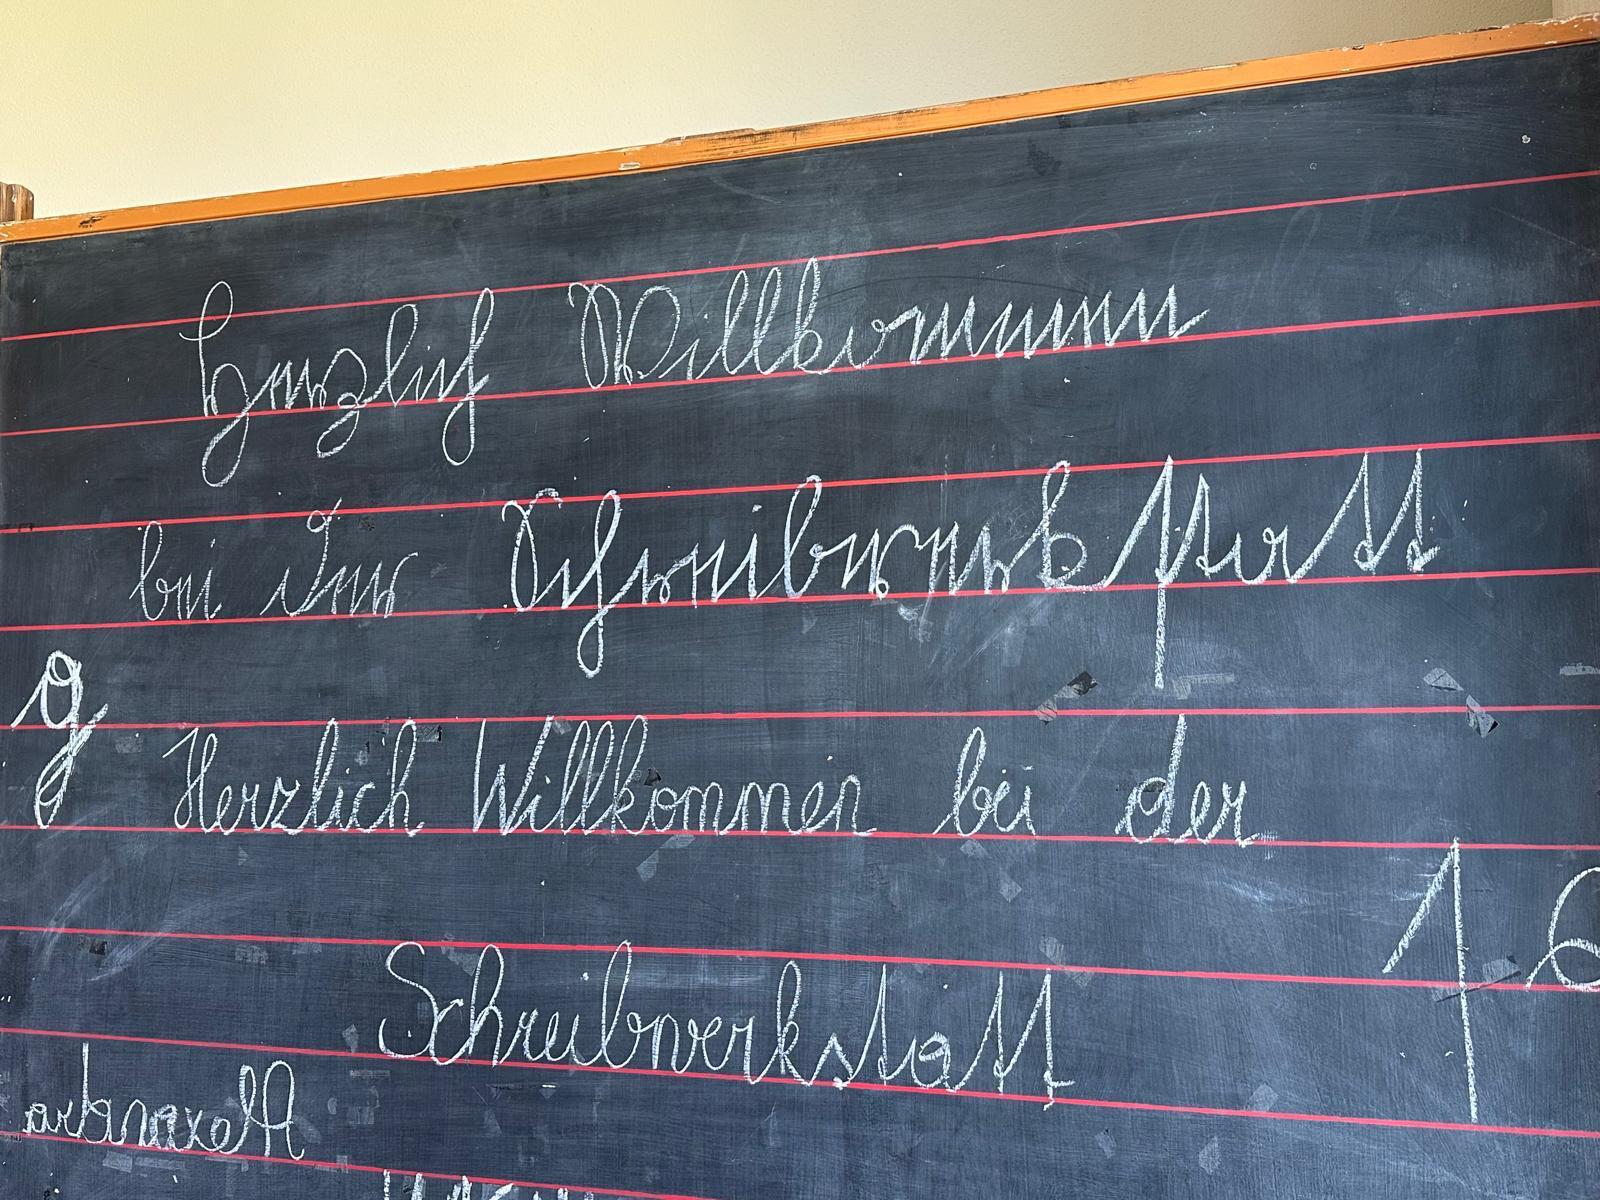 Herzlich Willkommen
bei der Schreibwerkstatt
g
Herzlich Willkommen bei der
Schreibwerkstatt
Alexandra